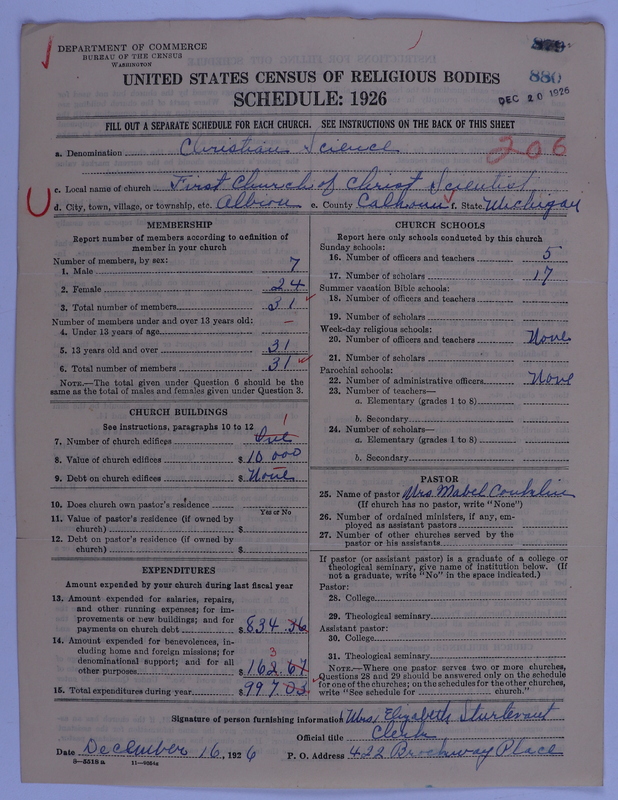 DEPARTMENT OF COMMERCE
BUREAU OF THE CENSUS
WASHINGTON
880
DEC 20 1926
UNITED STATES CENSUS OF RELIGIOUS BODIES
SCHEDULE: 1926
FILL OUT A SEPARATE SCHEDULE FOR EACH CHURCH. SEE INSTRUCTIONS ON THE BACK OF THIS SHEET
a. Denomination Christian Science
206
c. Local name of church First Church of Christ Scientist
d. City, town, village, or township, etc. Albion e. County Calhoun f. State Michigan
MEMBERSHIP
Report number of members according to definition of
member in your church
Number of members, by sex:
1. Male 7
2. Female 24
3. Total number of members 31
Number of members under and over 13 years old:
4. Under 13 years of age —
5. 13 years old and over 31
6. Total number of members 31
NOTE.—The total given under Question 6 should be
same as the total of males and females given under Question 3.
CHURCH BUILDINGS
See instructions, paragraphs 10 to 12
1
7. Number of church edifices One
8. Value of church edifices $ 10 000
9. Debt on church edifices $ None
10. Does church own pastor's residence
Yes or No
11. Value of pastor's residence (if owned by
church) $
12. Debt on pastor's residence (if owned by
church) $
EXPENDITURES
Amount expended by your church during last fiscal year
13. Amount expended for salaries, repairs,
and other running expenses; for im-
provements or new buildings; and for
payments on church debt $ 834.36
14. Amount expended for benevolences, in-
cluding home and foreign missions; for
denominational support; and for all
other purposes $ 162.67
3
15. Total expenditures during year $ 997.03
CHURCH SCHOOLS
Report here only schools conducted by this church
Sunday schools:
16. Number of officers and teachers 5
17. Number of scholars 17
Summer vacation Bible schools:
18. Number of officers and teachers
19. Number of scholars
Week-day religious schools:
20. Number of officers and teachers None
21. Number of scholars
Parochial schools:
22. Number of administrative officers None
23. Number of teachers—
a. Elementary (grades 1 to 8)
b. Secondary
24. Number of scholars—
a. Elementary (grades 1 to 8)
b. Secondary
PASTOR
25. Name of pastor Mrs. Mabel Conklin
(If church has no pastor, write "None")
26. Number of ordained ministers, if any, em-
ployed as assistant pastors
27. Number of other churches served by the
pastor or his assistants
If pastor (or assistant pastor) is a graduate of a college or
theological seminary, give name of institution below. (If
not a graduate, write "No" in the space indicated.)
Pastor:
28. College
29. Theological seminary
Assistant pastor:
30. College
31. Theological seminary
NOTE.—Where one pastor serves two or more churches,
Questions 28 and 29 should be answered only on the schedule
for one of the churches; on the schedules for the other churches,
write "See schedule for church."
Signature of person furnishing information Mrs. Elizabeth Sturtevant
Official title Clerk
Date December 16, 1926 P. O. Address 422 Brockway Place
8—5518 a